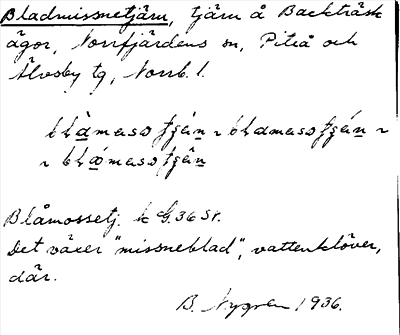 Bladmissnetjärn, tjärn å Backträsk
ägor, Norrfjärdens sn, Piteå och
Älvsby tg, Norrb. l.
Blåmossetj. k G. 36 SV.
Det växer "missneblad", vattenklöver,
där.
B. Nygren 1936.